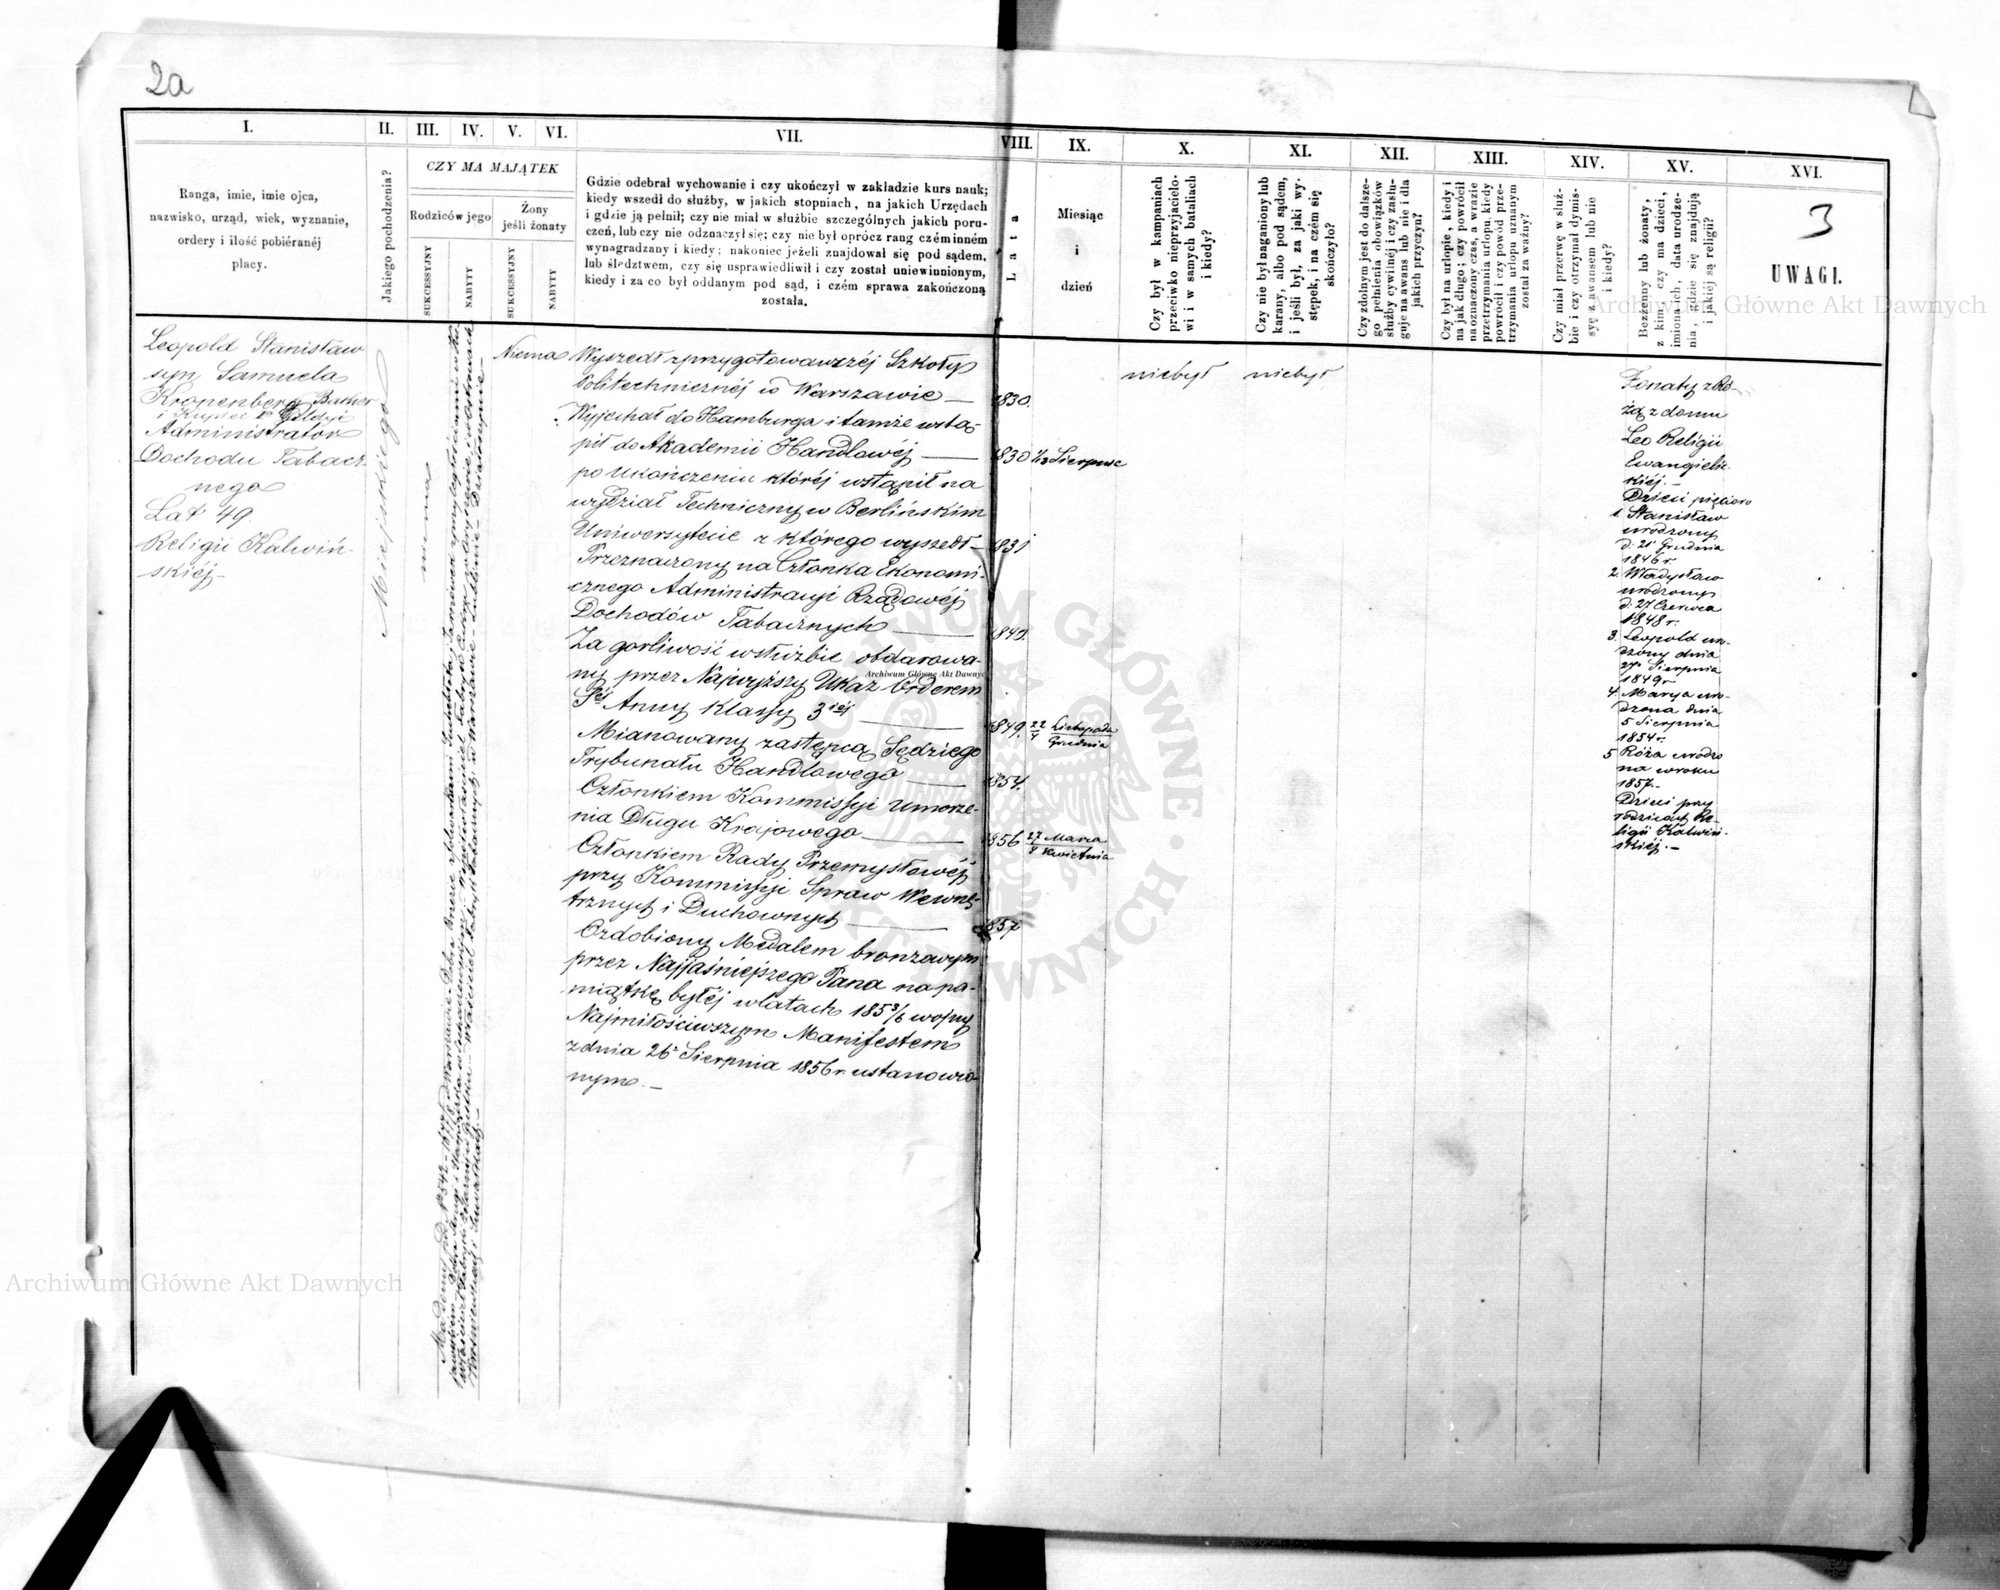 2a
I.
II.
III.
IV.
V.
VI.
VII.
VIII.
IX.
X.
XI.
XII.
XIII.
XIV.
XV.
XVI.
Ranga, imie, imie ojca,
nazwisko, urząd, wiek, wyznanie,
ordery i ilość pobiéranéj
płacy.
Jakiego pochodzenia?
CZY MA MAJĄTEK
Rodziców jego
Żony
jeśli żonaty
SUKCESSYJNY
NABYTY
SUKCESSYJNY
NABYTY
Gdzie odebrał wychowanie i czy ukończył w zakładzie kurs nauk;
kiedy wszedł do służby, w jakich stopniach, na jakich Urzędach
i gdzie ją pełnił; czy nie miał w służbie szczególnych jakich poru-
czeń, lub czy nie odznaczył się; czy nie był oprócz rang czém inném
wynagradzany i kiedy; nakoniec jeżeli znajdował się pod sądem,
lub śledztwem, czy się usprawiedliwił i czy został uniewinnionym,
kiedy i za co był oddanym pod sąd, i czém sprawa zakończoną
została.
Lata
Miesiąc
i
dzień
Czy był w kampaniach
przeciwko nieprzyjacioło-
wi i w samych bataliach
i kiedy?
Czy nie był naganiony lub
karany, albo pod sądem,
i jeśli był, za jaki wy-
stępek, i na czém się
skończyło?
Czy zdolnym jest do dalsze-
go pełnienia obowiązków
służby cywilnéj i czy zasłu-
guje na awans lub nie i dla
jakich przyczyn?
Czy był na urlopie, kiedy i
na jak długo; czy powrócił
na oznaczony czas, a w razie
przetrzymania urlopu, kiedy
powrócił i czy powód prze-
trzymania urlopu uznanym
został za ważny?
Czy miał przerwę w służ-
bie i czy otrzymał dymis-
syę z awansem lub nie
i kiedy?
Bezżenny lub żonaty,
z kim, czy ma dzieci,
imiona ich, data urodze-
nia, gdzie się znajdują
i jakiéj są religii?
3
UWAGI.
Leopold Stanisław
syn Samuela
Kronenberg Banker
i Kupiec
Administrator
Dochodu Tabacz-
nego
Lat 49.
Religii Kalwiń-
skiéj –
Miejskiego
niema
Niema
Wyszedł z przygotowawczéj Szkoły
Politechnicznéj w Warszawie — 1830.
Wyjechał do Hamburga i tamże wstą-
pił do Akademii Handlowéj — 1830 Sierpnia
po ukończeniu któréj wstąpił na
wydział Techniczny w Berlińskim
Uniwersytecie z którego wyszedł – 1831
Przeznaczony na Członka Ekonomi-
cznego Administracyi Rządowéj
Dochodów Tabacznych — 1840.
Za gorliwość w służbie obdarowa-
ny przez Najwyższy Ukaz Orderem
Stej Anny Klassy 3ciéj — 1849. 22/4 Listopada/Grudnia
Mianowany zastępcą Sędziego
Trybunału Handlowego — 1854.
Członkiem Kommissyi Umorze-
nia Długu Krajowego — 1856 27/8 Marca/Kwietnia
Członkiem Rady Przemysłowéj
przy Kommissyi Spraw Wewnę-
trznych i Duchownych — 1857
Ozdobiony Medalem bronzowym
przez Najjaśniejszego Pana na pa-
miątkę byłéj w latach 1853/6 wojny
Najmiłościwszym Manifestem
z dnia 26 Sierpnia 1856 r. ustanowio-
nym. –
niebył
niebył
Żonaty z Ró-
żą z domu
Leo Religii
Ewangielic-
kiéj. –
Dzieci pięcioro
1. Stanisław
urodzony
d: 21 Grudnia
1846 r.
2. Władysław
urodzony
d: 27 Czerwca
1848 r.
3. Leopold uro-
dzony dnia
27 Sierpnia
1849 r
4. Marya uro-
dzona dnia
5 Sierpnia
1854 r.
5 Róża urodzo
na w roku
1857. –
Dzieci przy
rodzicach Re-
ligii Kalwiń-
skiéj. –
Archiwum Główne Akt Dawnych
Archiwum Główne Akt Dawnych
Archiwum Główne Akt Dawnych
ARCHIWUM GŁÓWNE AKT DAWNYCH